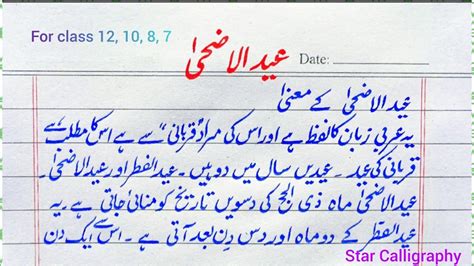 For class 12, 10, 8, 7
عید الاضحیٰ
Date:
عید الاضحیٰ کے معنیٰ
یہ عربی زبان کا لفظ ہے اور اس کی مراد "قربانی" سے ہے اس کا مطلب ہے
قربانی کی عید ۔ عیدیں سال میں دو ہیں ۔ عید الفطر اور عید الاضحیٰ ۔
عید الاضحیٰ ماہ ذی الحج کی دسویں تاریخ کو منائی جاتی ہے ۔ یہ
عید الفطر کے دو ماہ اور دس دن بعد آتی ہے ۔ اس سے ایک دن
Star Calligraphy